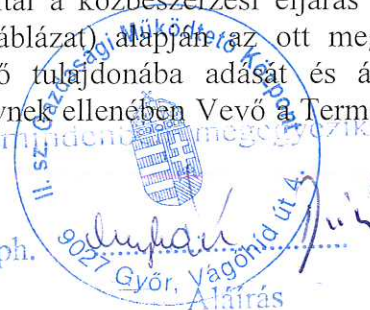 által a közbeszerzési eljárás
táblázat) alapján az ott meg
ő tulajdonába adását és á
ynek ellenében Vevő a Term
mindenben megegyezik
II. sz. Gazdasági Működtető Központ
9027 Győr, Vágóhíd út 4.
ph.
Aláírás